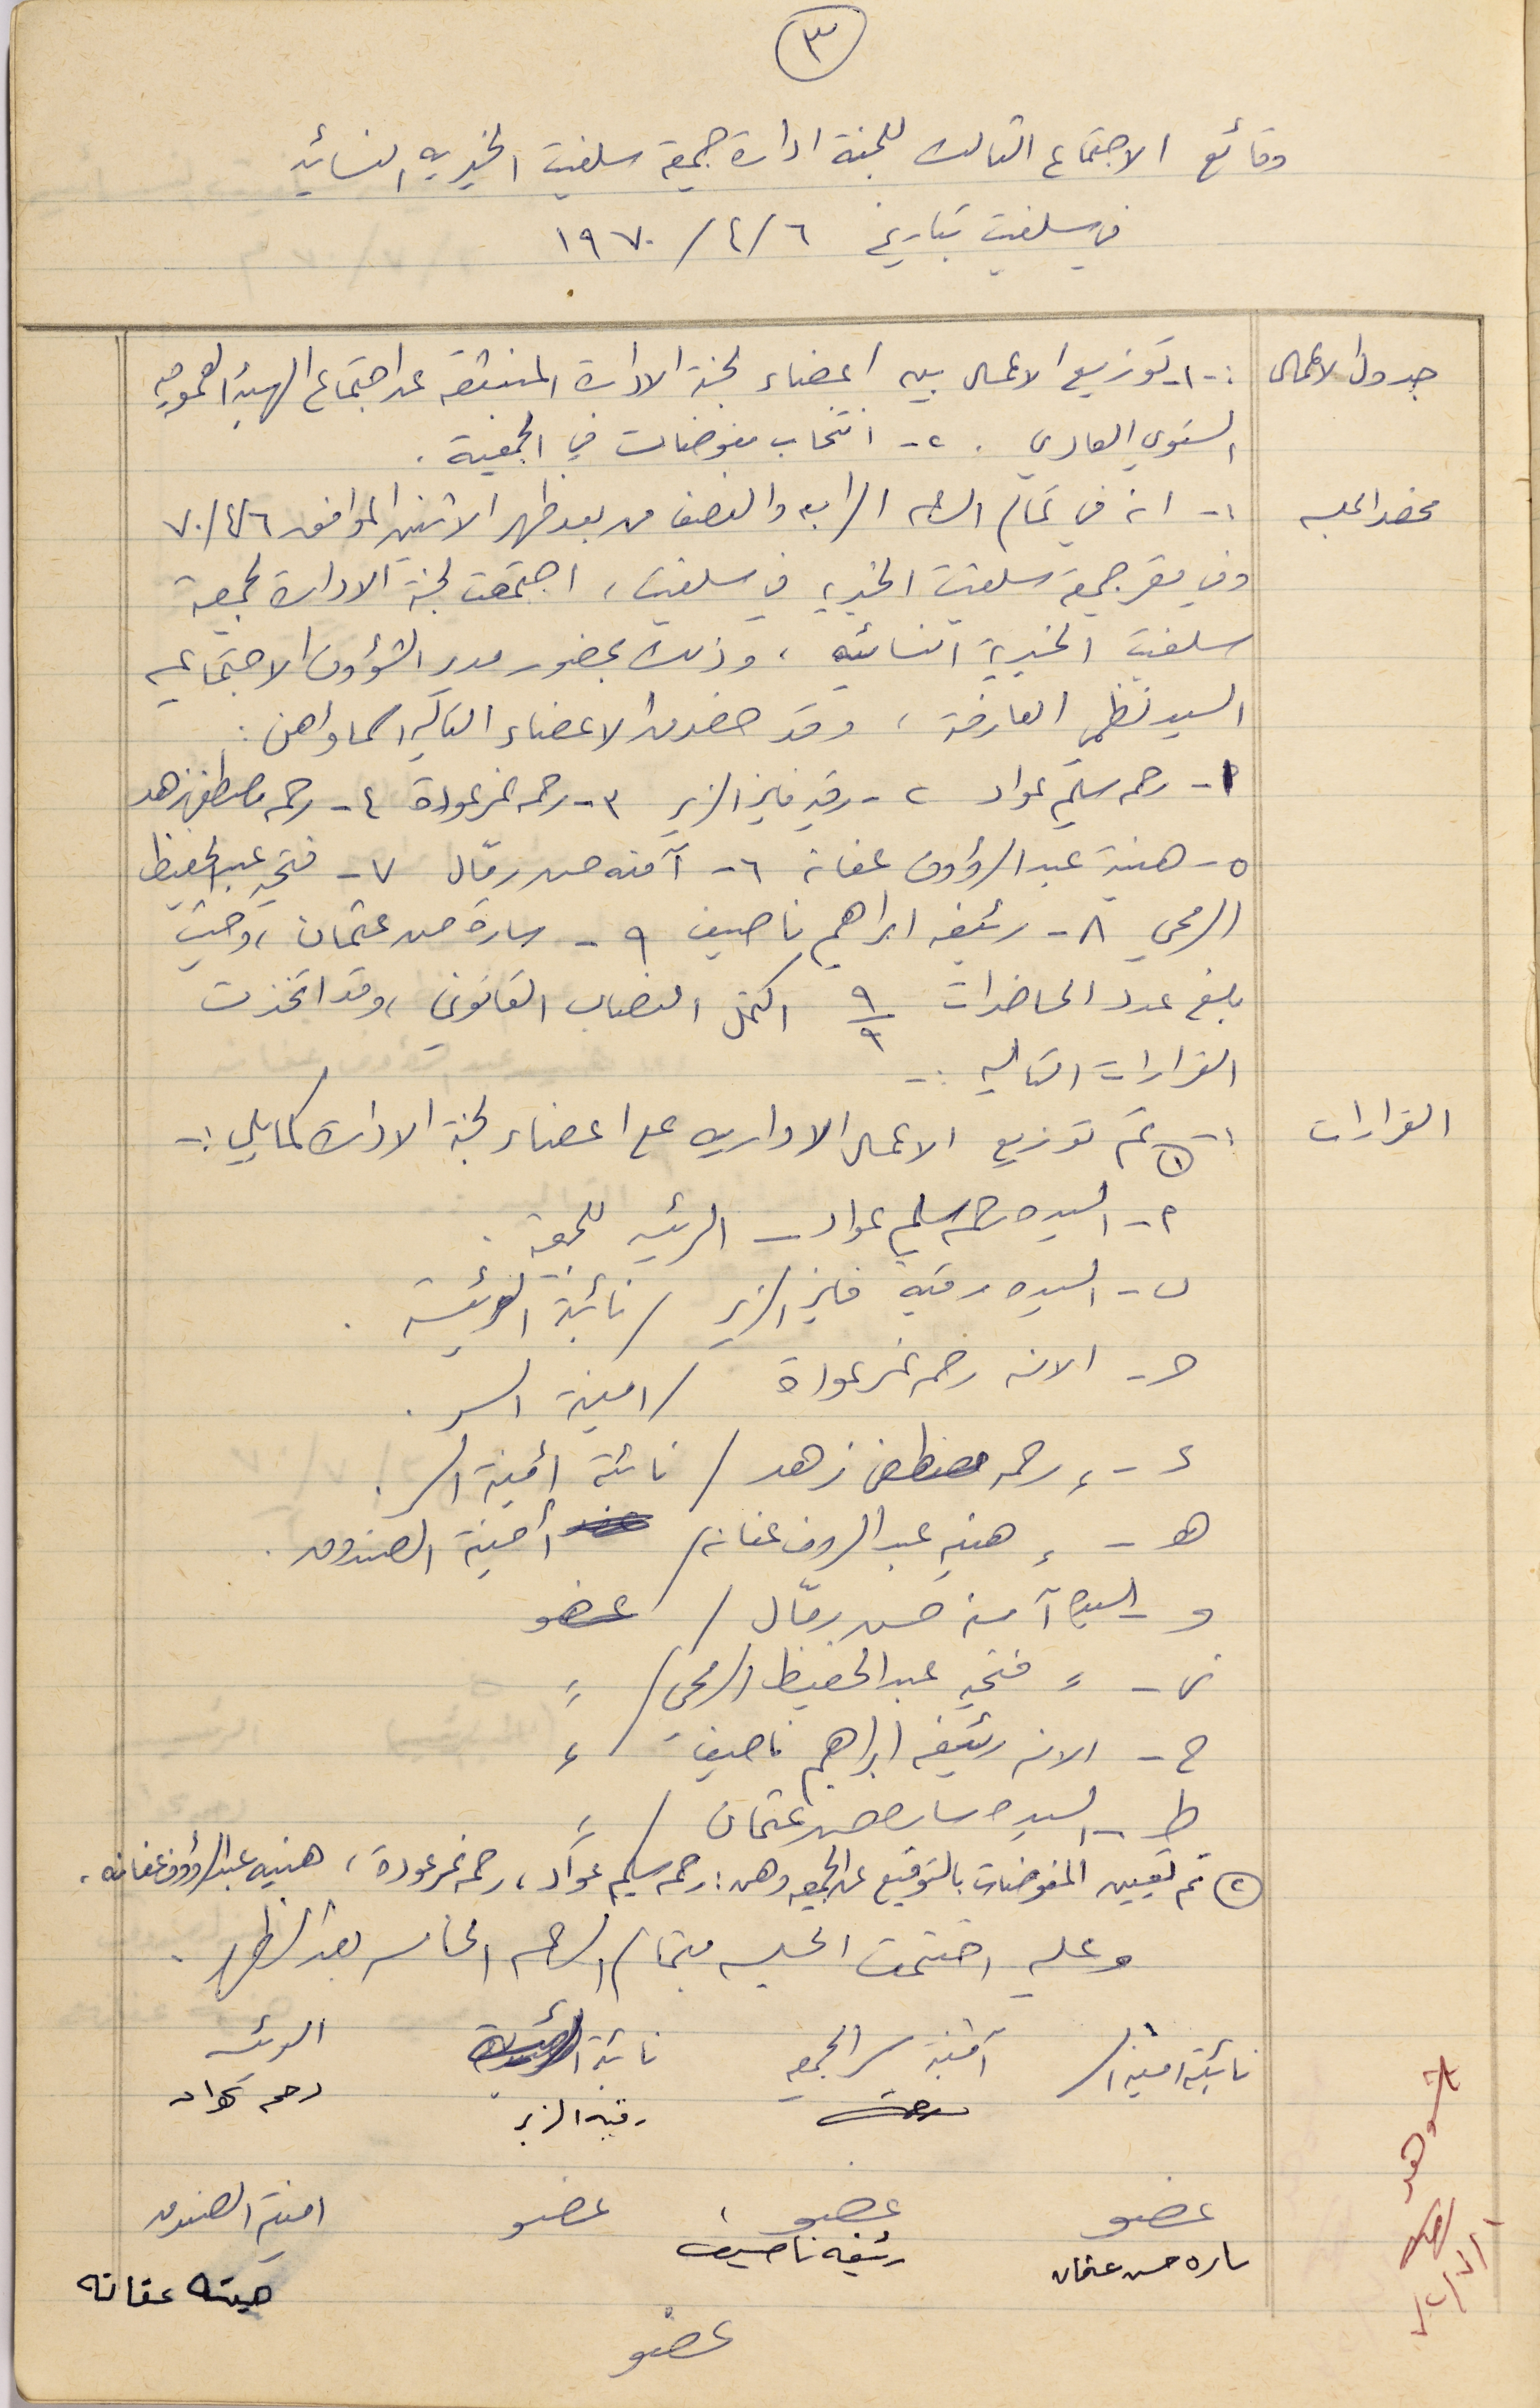 ٣
وقائع الاجتماع الثالث للجنة ادارة جمعية سلفيت الخيريه النسائيه
في سلفيت بتاريخ ٦/٤/١٩٧٠
جدول الاعمال :- ١- توزيع الاعمال بين اعضاء لجنة الادارة المنبثقه عن اجتماع الهيئة العموميه
السنوي العادي . ٢- انتخاب مفوضات في الجمعية .
محضر الجلسه ١- انه في تمام الساعه الرابعه والنصف من بعد ظهر الاثنين الموافق ٧٠/٤/٦
وفي مقر جمعية سلفيت الخيريه في سلفيت ، اجتمعت لجنة الادارة لجمعية
سلفيت الخيرية النسائيه ، وذلك بحضور مدير الشؤون الاجتماعيه
السيد نظمي العارضة ، وقد حضر من الاعضاء التاليه اسماؤهن :
١- رحمه سليم عواد ٢- رقيه فايز الزير ٣- رحمه نمر عودة ٤- رحمه مصطفى زهد
٥- هنية عبد الرؤوف عفانه ٦- آمنه حسن رمّال ٧- فتحيه عبد الحفيظ
الرمحي ٨- رئيفه ابراهيم ناصيف ٩- ساره حسن عثمان ، وحيث
بلغ عدد الحاضرات ٩/٩ اكتمل النصاب القانوني ، وقد اتخذت
القرارات التاليه :-
القرارات :- ١ تم توزيع الاعمال الاداريه على اعضاء لجنة الادارة كما يلي :-
أ- السيده رحمه سليم عواد - الرئيسه للجمعية .
ب- السيده رقيه فايز الزير / نائبة الرئيسة .
ج- الانسه رحمه نمر عودة / امينة السر .
د- ء رحمه مصطفى زهد / نائبة أمينة السر .
هـ- ء هنيه عبد الروف عفانه / أمينة الصندوق .
و- السيده آمنه حسن رمّال / عضو
ز- ء فتحيه عبد الحفيظ الرمحي / ء
ح- الانسه رئيفه ابراهيم ناصيف / ء
ط- السيده ساره حسن عثمان / ء
٢ تم تعيين المفوضات بالتوقيع عن الجمعيه وهن : رحمه سليم عوّاد ، رحمه نمر عودة ، هنيه عبد الرؤوف عفانه .
وعليه اختتمت الجلسه بتمام الساعه الخامسه بعد الظهر .
نائبة امينة السر أمينة سر الجمعيه نائبة الرئيسة الرئيسه
رقية الزير رحمه عواد
عضو عضو عضو امينة الصندوق
ساره حسن عثمان رئيفه ناصيف هنيه عفانه
عضو